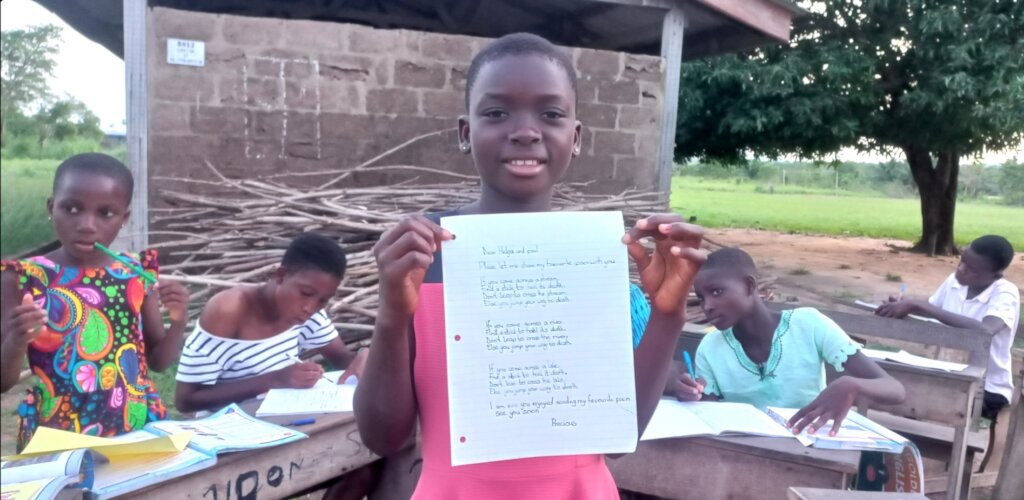 Dear Helga and
Please let me share my favourite poem with you
If you come across a stream,
Find a stick to tell its depth,
Don't leap to cross the stream,
Else you jump your way to death.
If you come across a river,
Find a stick to tell its depth,
Don't leap to cross the river,
Else you jump your way to death.
If you come across a lake,
Find a stick to tell its depth,
Don't leap to cross the lake,
Else you jump your way to death.
I am sure you enjoyed reading my favourite poem
see you soon
Precious
UDON